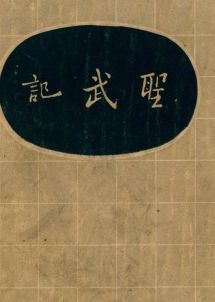 聖武記